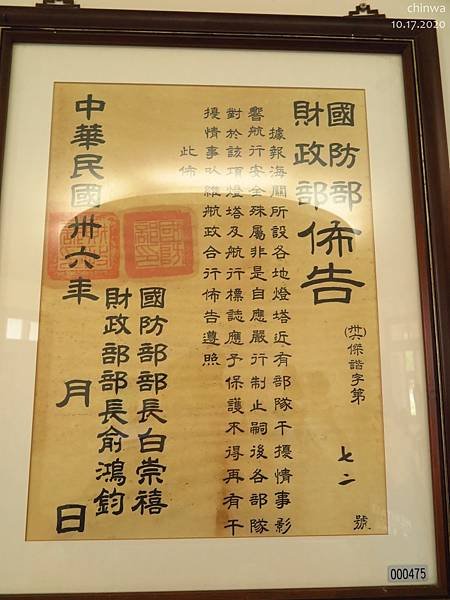 chinwa
10.17.2020
國防部
財政部
佈告
(卅六)傑諧字第 七二 號
據報海關所設各地燈塔近有部隊干擾情事影
響航行安全殊屬非是自應嚴行制止嗣後各部隊
對於該項燈塔及航行標誌應予保護不得再有干
擾情事以維航政合行佈告遵照
此佈
國防部部長白崇禧
財政部部長俞鴻鈞
中華民國卅六年 月 日
000475